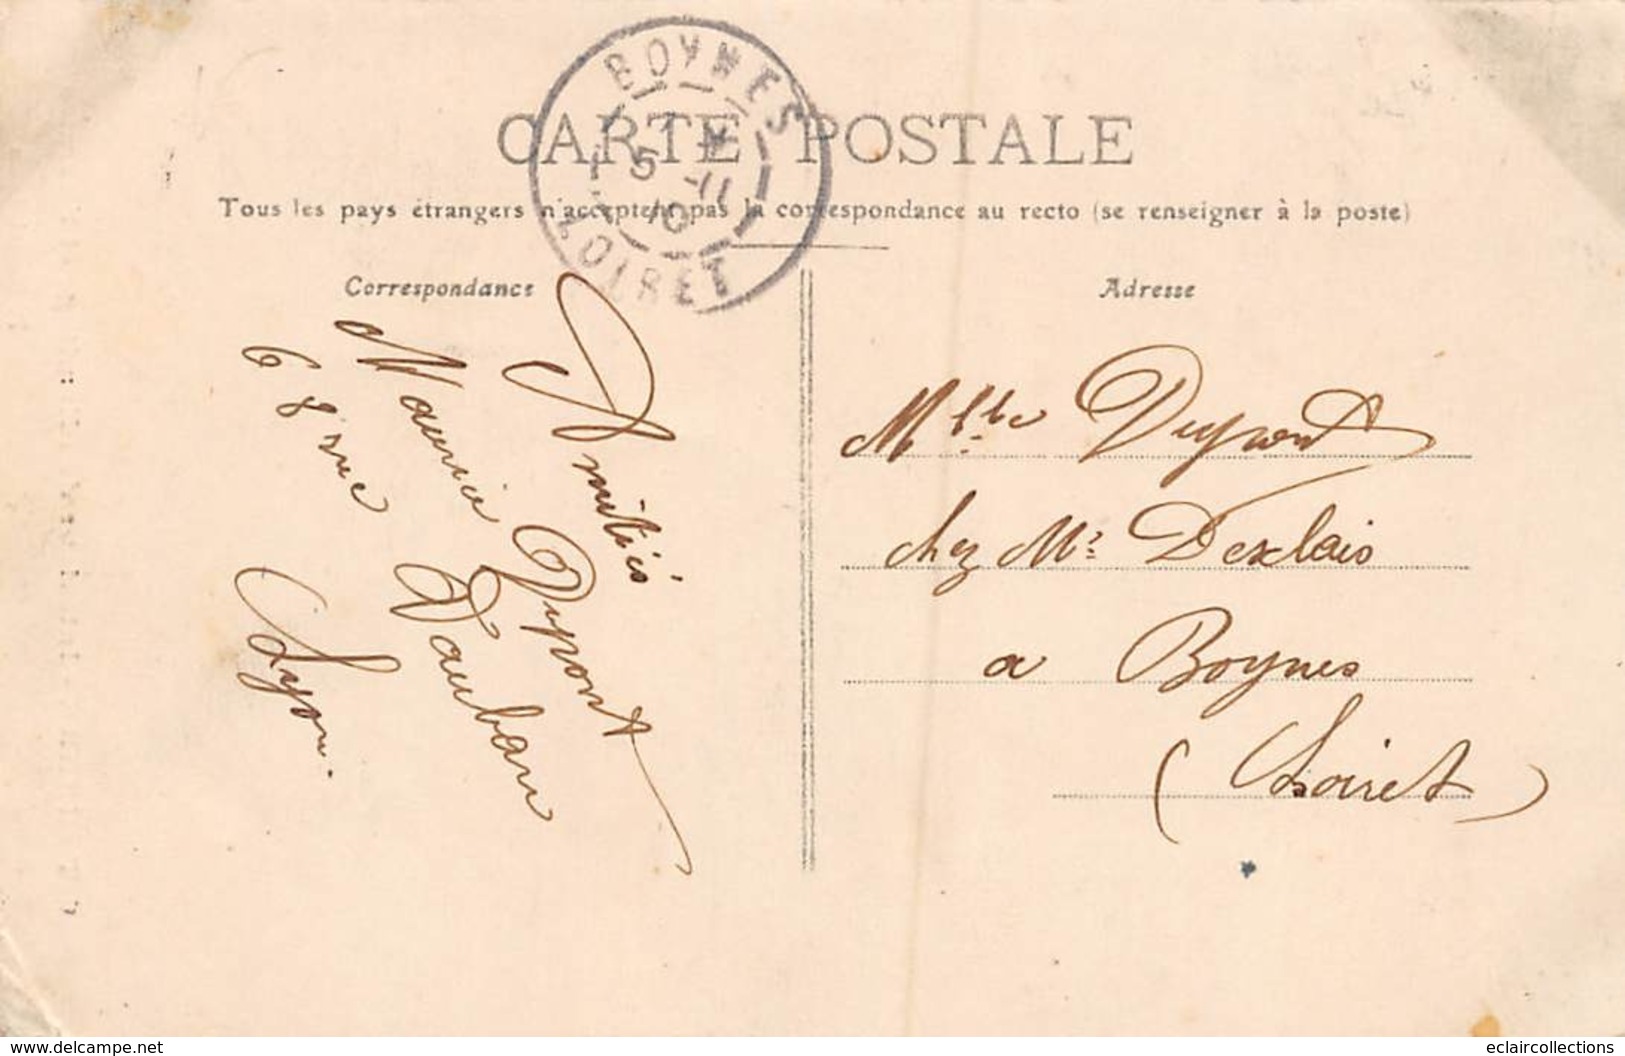 BOYNES
CARTE POSTALE
Tous les pays étrangers n'acceptent pas la correspondance au recto (se renseigner à la poste)
LOIRET
Correspondance
Amitiés
Maurice Dupont
68 rue Vauban
Lyon.
Adresse
Mlle Dupont
chez Mr Dexlais
a Boynes
(Loiret)
www.delcampe.net
eclaircollections